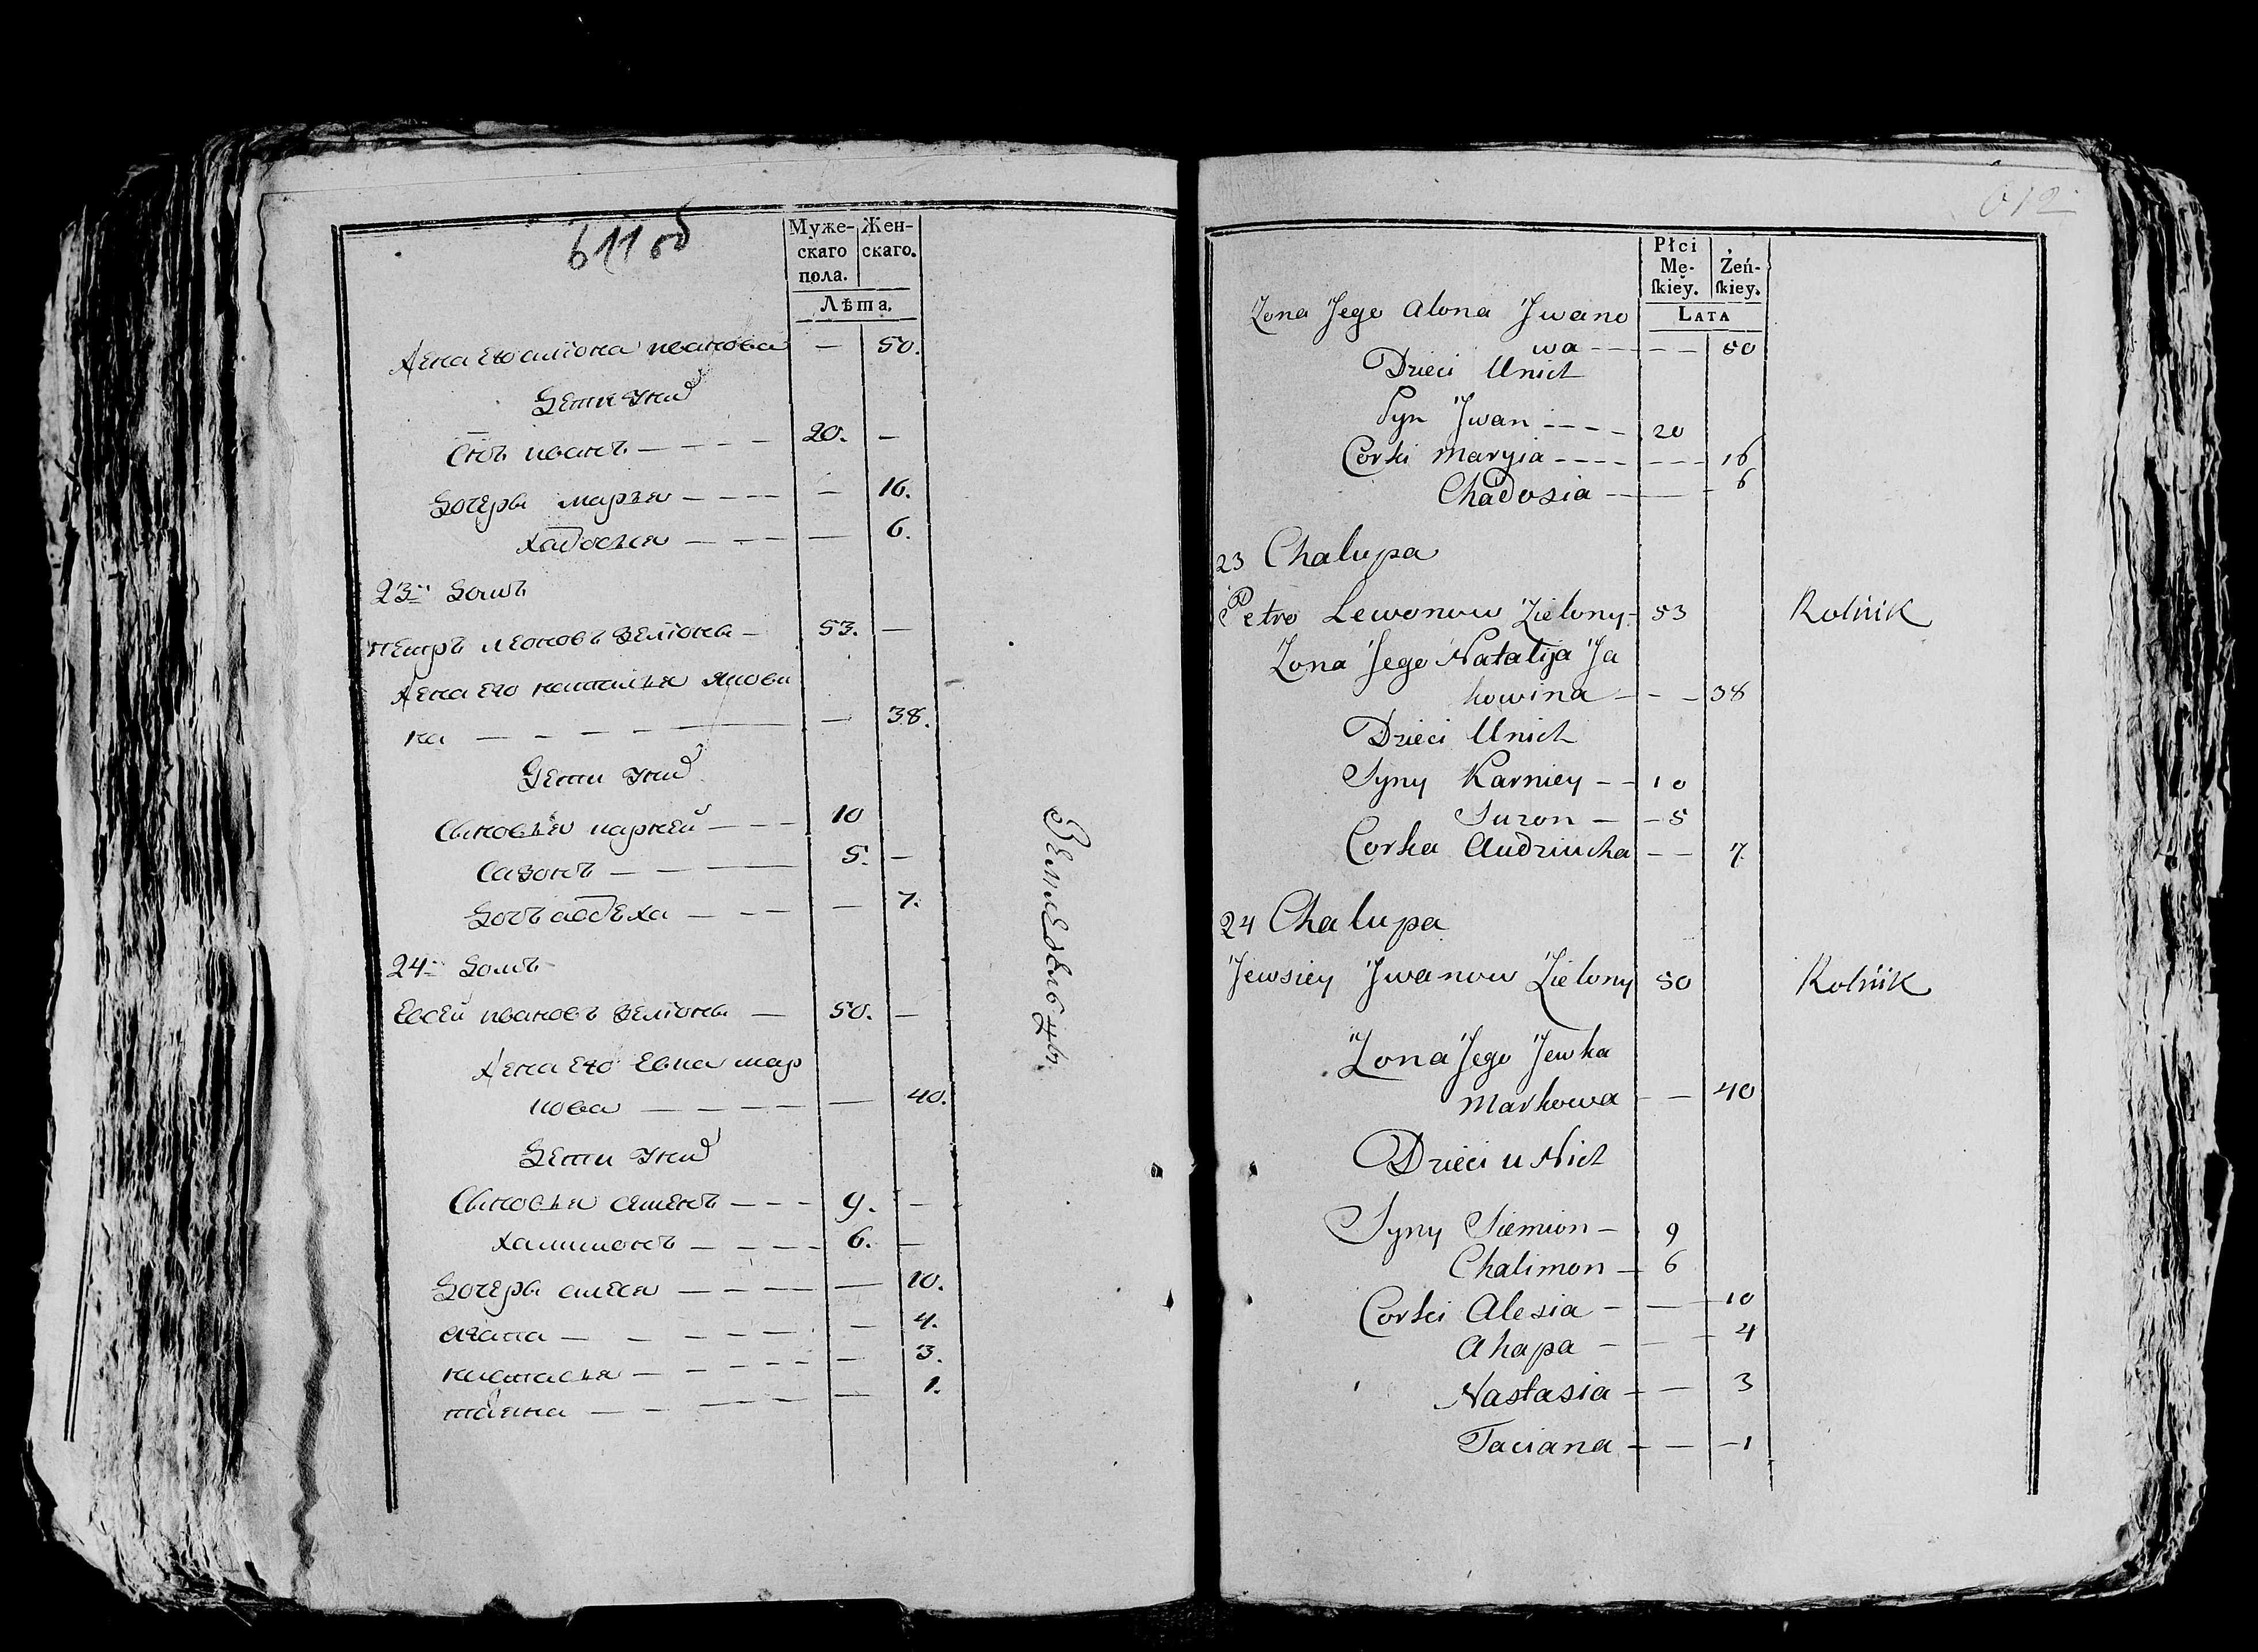 611 об
Муже- Жен-
скаго скаго.
пола.
Лѣта.
Жена его алiона иванова — 50.
Дети уних
Снъ иванъ — 20. —
Дочеры марья — — 16.
хадосья — — 6.
23й Домъ
петръ леоновъ зелiоны — 53. —
Жена его наталья якови
на — — 38.
Дети уних
Сыновья карней — 10
Сазонъ — 5. —
Дочъ авдеха — — 7.
24й Домъ
Евсей ивановъ зелiоны — 50. —
Жена его Евка мар
кова — — 40.
Дети уних
Сыновья семенъ — 9. —
халимонъ — 6. —
Дочеры алеся — — 10.
агапа — — 4.
настасья — — 3.
— — 1.
Земледелецъ
612
Płci
Mę- Żeń-
skiey. skiey.
LATA
Zona Jego Alona Jwano
wa — — 50
Dzieci Unich
Syn Jwan — 20
Corki Maryia — — 16
Chadosia — — 6
23 Chalupa
Petro Lewonow Zielony 53 Rolnik
Zona Jego Natalija Ja
kowina — — 38
Dzieci Unich
Syny Karniey — 10
Suzon — 5
Corka Audziucha — — 7
24 Chalupa
Jewsiey Jwanow Zielony 50 Rolnik
Zona Jego Jewka
Markowa — 40
Dzieci u Nich
Syny Siemion — 9
Chalimon — 6
Corki Alesia — — 10
Ahapa — — 4
Nastasia — — 3
Taciana — — 1